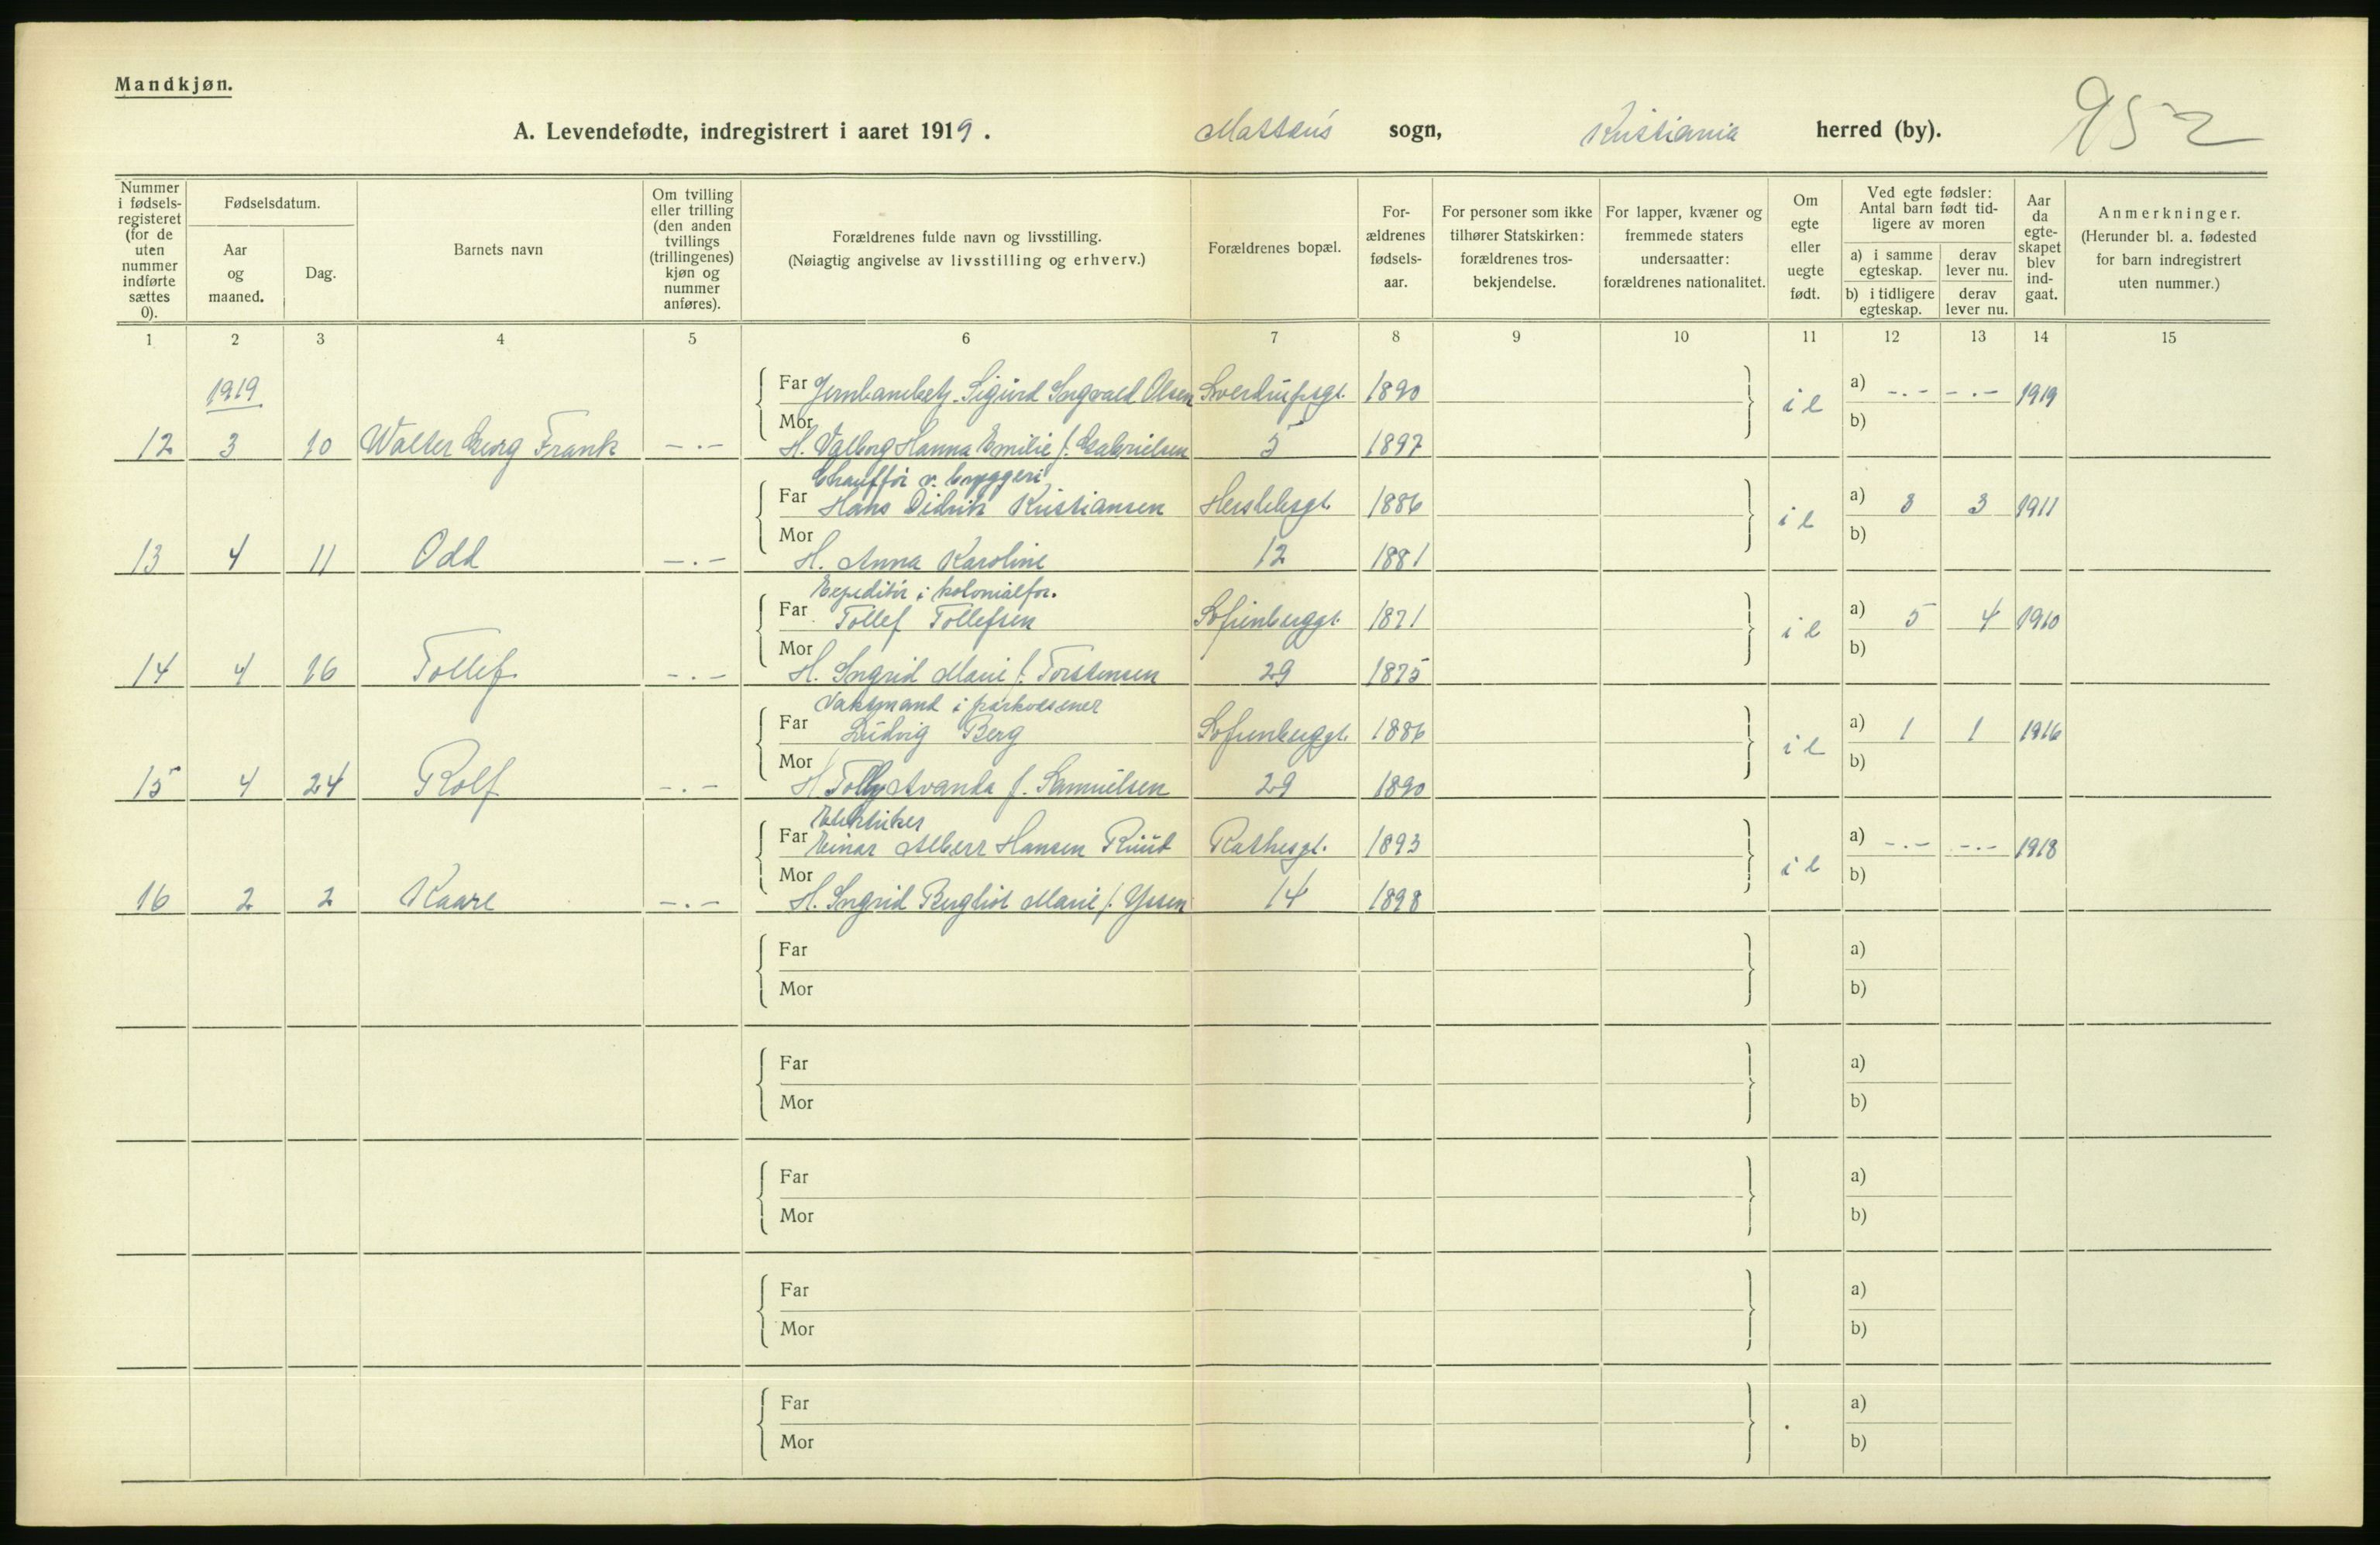 Mandkjøn.
A. Levendefødte, indregistrert i aaret 1919. Mattæus sogn, Kristiania herred (by). 952
Nummer i fødselsregisteret (for de uten nummer indførte sættes 0).
Fødselsdatum.
Aar og maaned.
Dag.
Barnets navn
Om tvilling eller trilling (den anden tvillings (trillingenes) kjøn og nummer anføres).
Forældrenes fulde navn og livsstilling.
(Nøiagtig angivelse av livsstilling og erhverv.)
Forældrenes bopæl.
For-ældrenes fødsels-aar.
For personer som ikke tilhører Statskirken: forældrenes tros-bekjendelse.
For lapper, kvæner og fremmede staters undersaatter: forældrenes nationalitet.
Om egte eller uegte født.
Ved egte fødsler: Antal barn født tid-ligere av moren
a) i samme egteskap.
derav lever nu.
b) i tidligere egteskap.
derav lever nu.
Aar da egte-skapet blev ind-gaat.
Anmerkninger.
(Herunder bl. a. fødested for barn indregistrert uten nummer.)
1 2 3 4 5 6 7 8 9 10 11 12 13 14 15
1919
Far Jernbanebetj. Sigurd Ingvald Olsen Sverdrupsgt. 1890 a) -.- -.- 1919
12 3 10 Walter Georg Frank -.- Mor H. Valborg Hanna Emilie f. Gabrielsen 5 1897 i e b)
Chauffør v. bryggeri
Far Hans Didrik Kristiansen Herslebsgt. 1886 a) 3 3 1911
13 4 11 Odd -.- Mor H. Anna Karoline 12 1881 i e b)
Expeditør i kolonialfor.
Far Tollef Tollefsen Sofienberggt. 1871 a) 5 4 1910
14 4 16 Tollef -.- Mor H. Ingrid Marie f. Torstensen 29 1875 i e b)
Vaktmand i parkvæsenet
Far Ludvig Berg Sofienberggt. 1886 a) 1 1 1916
15 4 24 Rolf -.- Mor H. Tolly Avanda f. Samuelsen 29 1890 i e b)
Elektriker
Far Einar Albert Hansen Ruud Rathesgt. 1893 a) -.- -.- 1918
16 2 2 Kaare -.- Mor H. Ingrid Bergliot Marie f. Yssen 14 1898 i e b)
Far a)
Mor b)
Far a)
Mor b)
Far a)
Mor b)
Far a)
Mor b)
Far a)
Mor b)